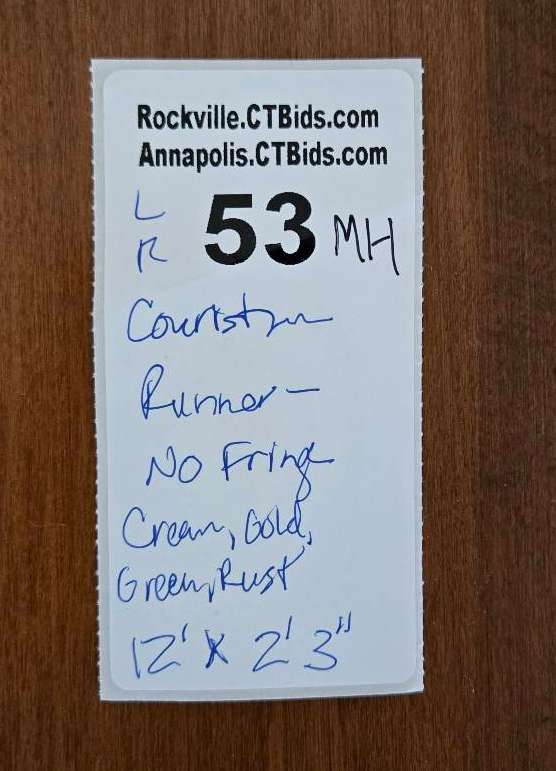 Rockville.CTBids.com
Annapolis.CTBids.com
L
R
53 MH
Couristan
Runner-
No Fringe
Cream, Gold,
Green, Rust
12' x 2' 3"